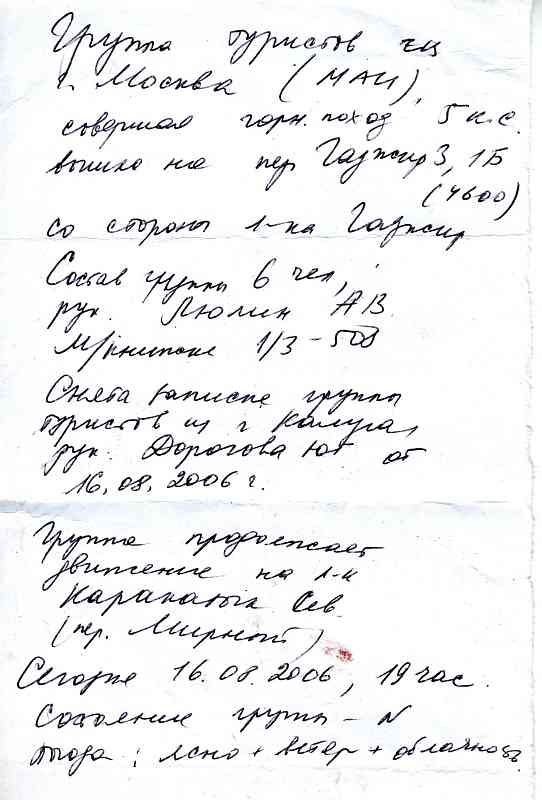 Группа туристов из
г. Москва (МАИ),
совершая горн. поход 5 к.с.
вышла на пер Гаджир 3, 1Б
(4600)
со стороны л-ка Гаджир
Состав группы 6 чел,
рук. Люлин А В.
М/книжка 1/3-508
Снята записка группы
туристов из г Калуга,
рук. Дорогова ЮГ от
16.08.2006 г.
Группа продолжает
движение на л-к
Каракатык Сев.
(пер. Мирный)
Сегодня 16.08.2006, 19 час.
Состояние группы - N
погода: ясно + ветер + облачность